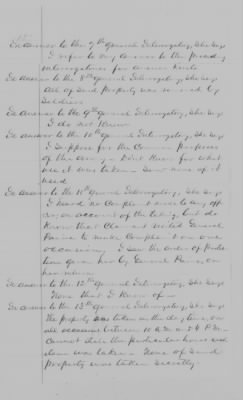 In answer to the 7th General Interrogatory, She Says
I refer to my answer to the preceding
interrogatories for answer hereto
In answer to the 8th General Interrogatory, She Says
All of said Property was removed by
Soldiers
In answer to the 9th General Interrogatory, She Says
I do not know
In answer to the 10th General Interrogatory, She Says
I suppose for the Common purposes
of the army - Don't know for what
use it was taken - Saw none of it
used
In answer to the 11th General Interrogatory, She Says
I heard no Complaint made to any offi
cer on account of the taking, but do
know that Claimant visited General
Paine to make Complaint on one
occasion. I saw the order of protec
tion given her by General Paine, on
her return
In answer to the 12th General Interrogatory, She Says
None that I know of -
In answer to the 13th General Interrogatory, She Says
The property was taken in the day time, on
all occasions between 10 A.M. & 4 P.M.
Cannot state the particular hours each
item was taken - None of said
Property was taken secretly